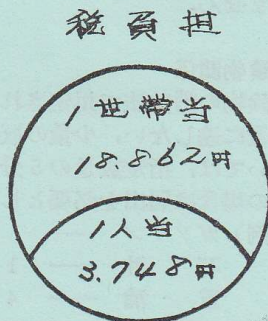 税負担
1世帯当
18.862円
1人当
3.748円